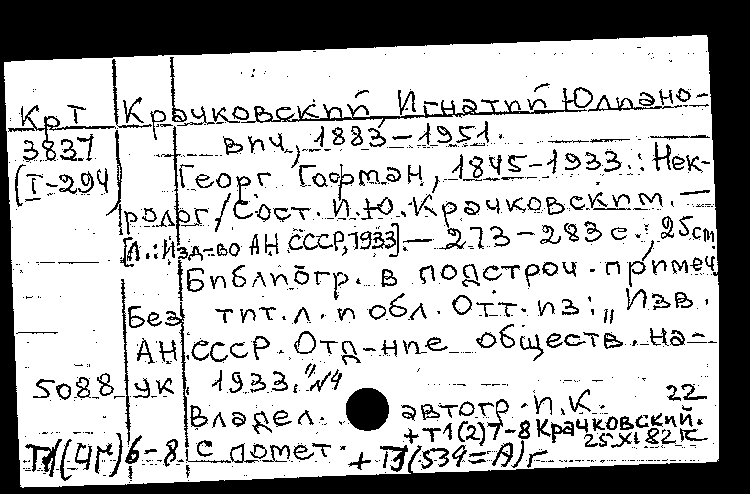 КрТ Крачковский, Игнатий Юлиано-
3837 вич, 1883-1951.
(Т-294) Георг Гофман, 1845-1933.: Нек-
ролог/Сост. И.Ю.Крачковским. —
[Л.: Изд-во АН СССР, 1933]. — 273-283 с.; 25 cm
Библиогр. в подстроч. примеч
Без тит.л. и обл. Отт. из: „Изв.
АН СССР. Отд-ние обществ. на-
5088 ук 1933. "№4
Владел. автогр. И.К. 22
+Т1(2)7-8 Крачковский.
25.XI.82
6-8 с помет.